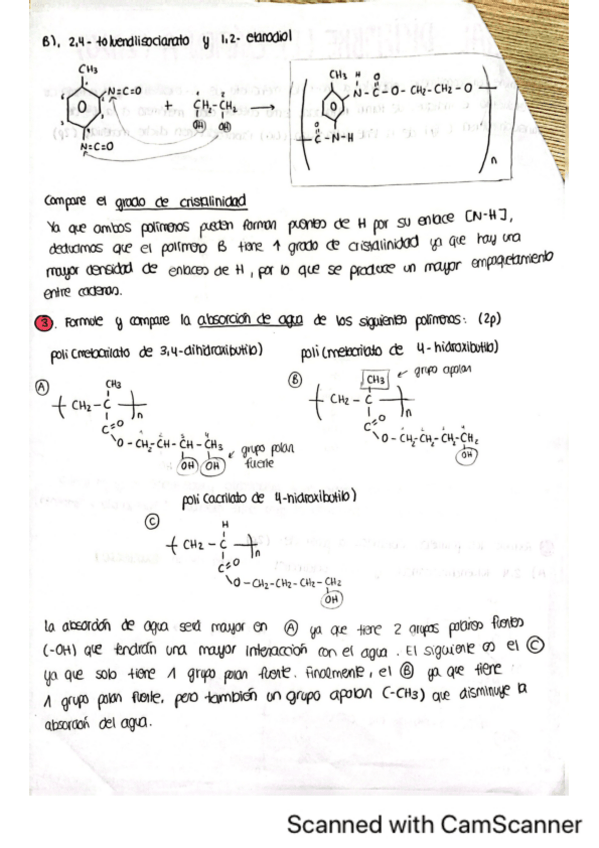 B), 2,4-toluendiisocianato y 1,2-etanodiol
CH3
N=C=O
+
CH2-CH2
OH OH
N=C=O
CH3 H O
N-C-O-CH2-CH2-O
O
C-N-H
n
Compare el grado de cristalinidad
Ya que ambos polímeros pueden formar puentes de H por su enlace [N-H],
deducimos que el polímero B tiene ↑ grado de cristalinidad ya que hay una
mayor densidad de enlaces de H, por lo que se produce un mayor empaquetamiento
entre cadenas.
3. Formule y compare la absorción de agua de los siguientes polímeros: (2p)
poli(metacrilato de 3,4-dihidroxibutilo) poli(metacrilato de 4-hidroxibutilo)
A
CH3
CH2-C
n
C=O
O-CH2-CH-CH-CH3
OH OH
grupo polar
fuerte
B
CH3
grupo apolar
CH2-C
n
C=O
O-CH2-CH2-CH2-CH2
OH
poli(acrilato de 4-hidroxibutilo)
C
H
CH2-C
n
C=O
O-CH2-CH2-CH2-CH2
OH
La absorción de agua será mayor en A ya que tiene 2 grupos polares fuertes
(-OH) que tendrán una mayor interacción con el agua. El siguiente es el C
ya que solo tiene 1 grupo polar fuerte. Finalmente, el B ya que tiene
1 grupo polar fuerte, pero también un grupo apolar (-CH3) que disminuye la
absorción del agua.
Scanned with CamScanner